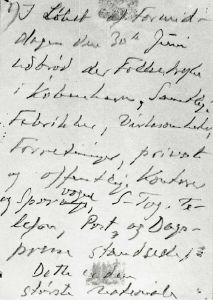 I Løbet af Formid-
dagen den 30te Juni
udbrød der Folkestrejke
i København, Samtlige
Fabrikker, Virksomheder,
Forretninger, privat
og offentlig, Kontorer
og Sporvogne, S-Tog, Te-
lefon, Post, og Dags-
presse standsede,
Dette er den
største Nationale